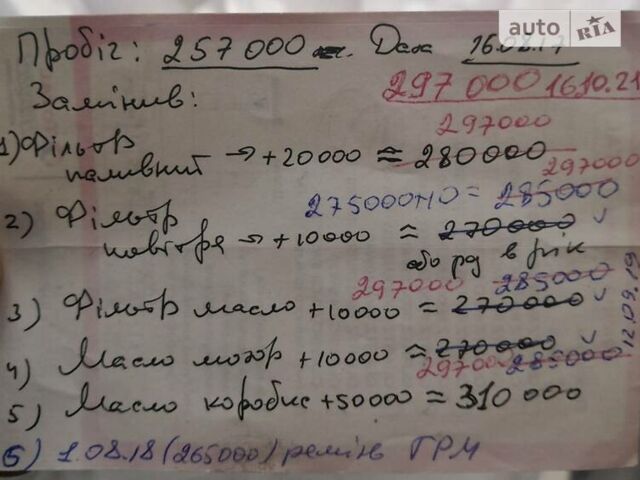 auto RIA
Пробіг: 257 000 км. Дата 16.08.17
297 000 16.10.21
Замінив:
297000
1) Фільтр
паливний → +20000 ≈ 280000
297000
275000+10 = 285000
2) Фільтр
повітря → +10000 ≈ 270000 ✓
або раз в рік
297000 285000
3) Фільтр масло +10000 ≈ 270000 ✓
12.09.19
4) Масло мотор +10000 ≈ 270000 ✓
297000 285000
5) Масло коробка +50000 ≈ 310 000
6) 1.08.18 (265000) ремінь ГРМ